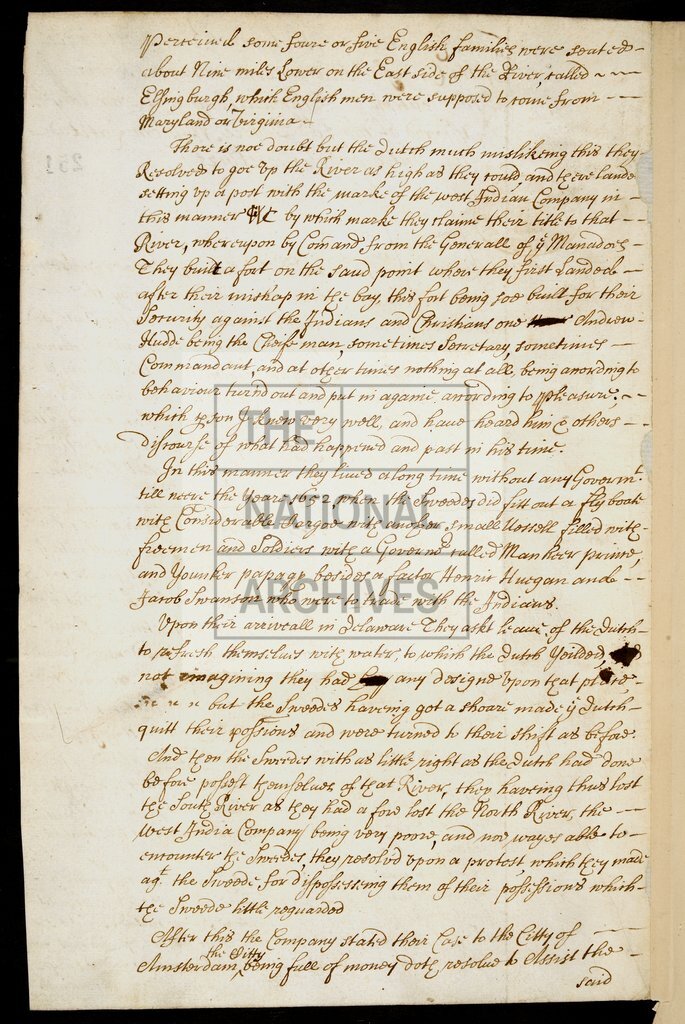 Perceived some foure or five English families were seated
about Nine miles Lower on the East side of the River, called
Elsingburgh, which English men were supposed to come from
Maryland or Virginia
There is noe doubt but the Dutch much mislikeing this they
Resolved to goe up the River as high as they could, and there lande
setting up a post with the marke of the west Indian Company in
this manner by which marke they claime their title to that
River, whereupon by Comand from the Generall of ye Manados
They built a fort on the said point where they first Landed
after their mishap in the bay, this fort being soe built for their
Security against the Indians and Christians one Andrew
Hudde being the Cheife man, sometimes Secretary, sometimes
Commandant, and at other times nothing at all, being according to
behaviour turnd out and put in againe according to Pleasure,
which pson I knew very well, and have heard him & others
discourse of what had happened and past in his time.
In this manner they lived a long time without any Governmt.
till neere the yeare 1652, when the Sweedes did fitt out a fly boate
with Considerable Cargoe with another small Vessell filled with
freemen and Soldiers with a Governor called Manheer prince,
and Younker papago besides a factor Henric Huegan and
Jacob Swanson who were to trade with the Indians.
Upon their arriveall in Delaware They askt leave of the Dutch
to refresh themselves with water, to which the Dutch Yeilded,
not imagining they had any designe upon that place,
but the Sweedes haveing got a shoare made ye Dutch
quitt their possions and were turned to their shift as before.
And then the Sweedes with as little right as the Dutch had done
before possest themselves of that River, they haveing thus lost
the South River as they had a fore lost the North River, the
West India Company being very poore, and noe wayes able to
encounter the Sweedes, they resolv'd upon a protest, which they made
agt. the Sweede for dispossessing them of their possessions which
the Sweede little reguarded
After this the Company stated their Case to the Citty of
the Citty
Amsterdam being full of money doth resolve to Assist the
said
THE
NATIONAL
ARCHIVES